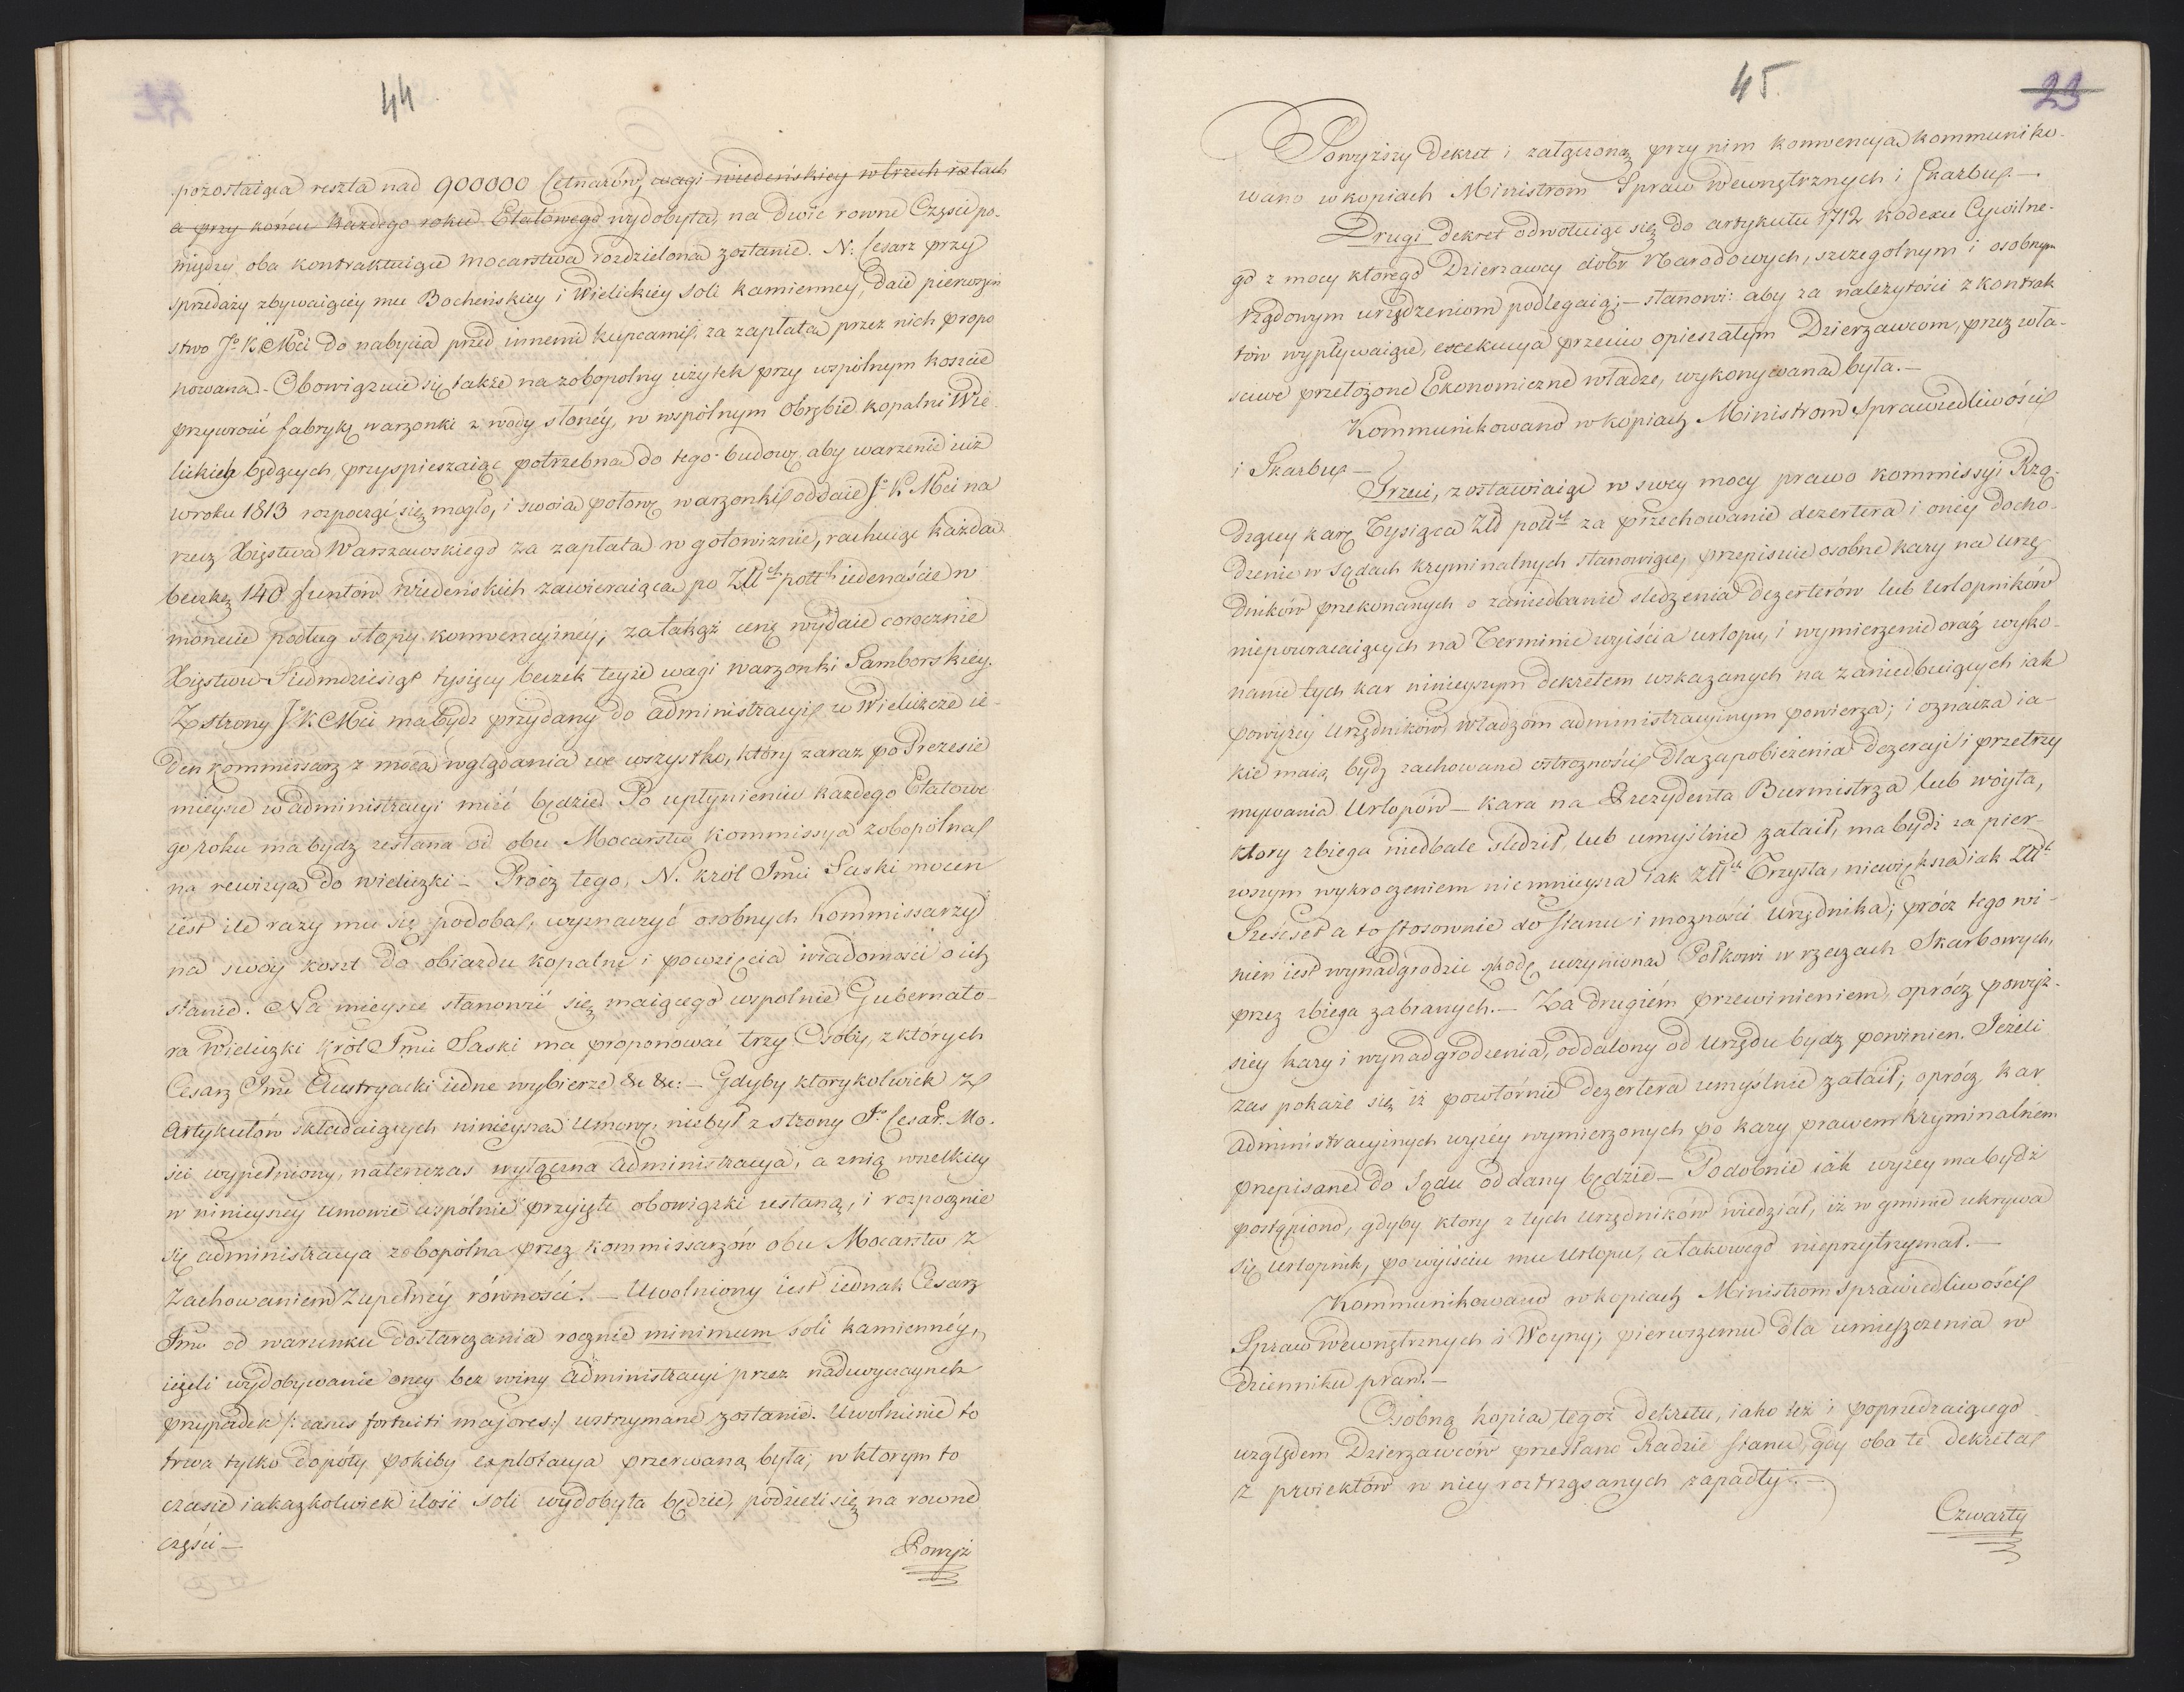 44
pozostaiąca reszta nad 900000 Cetnarów, wagi wiedeńskiey w trzech ratach
a przy końcu każdego roku Etatowego wydobyta, na dwie rowne Części po-
między oba kontraktuiące mocarstwa rozdzielona zostanie. N: Cesarz przy
sprzedaży zbywaiącéy mu Bocheńskiey i Wielickiey soli kamienney, daie pierwszeń
stwo Jo K Mci do nabycia przed innemi kupcami, za zapłatą przez nich propo
nowaną. Obowiązuie się także na zobopolny użytek przy wspólnym koszcie
przywrócić fabrykę warzonki z wody słonéy, w wspólnym obrębie kopalni Wie
lickich będących, przyspieszaiąc potrzebną do tego budowę, aby warzenie iuż
w roku 1813 rozpocząć się mogło, i swoią połowę warzonki oddaie Jo K Mci na
rzecz Xięstwa Warszawskiego za zapłatą w gotowiznie, rachuiąc każdą
beczkę 140 funtów wiedeńskich zawieraiącą po Złł. poll. iedenaście w
monecie podług stopy konwencyinéy; za takąż cenę wydaie corocznie
Xięstwu Siedmdziesiąt tysięcy beczek teyże wagi warzonki Samborskiey.
Z strony Jo K Mci ma bydź przydany do administracyi w Wieliczce ie-
den kommissarz z mocą wglądania we wszystko, który zaraz po Prezesie
mieysce w administracyi mieć będzie. Po upłynieniu każdego Etatowe
go roku ma bydź zesłana od obu Mocarstw Kommissya zobopólna
na rewizyą do wieliczki – Prócz tego, N. Król Jmć Saski mocen
iest ile razy mu się podoba, wyznaczyć osobnych Kommissarzy
na swóy koszt do obiazdu kopalni i powzięcia wiadomości o ich
stanie. Na mieysce stanowić się maiącego wspolnie Gubernato-
ra Wieliczki Król Jmć Saski ma proponować trzy Osoby, z których
Cesarz Jmć Austryacki iedne wybierze &c &c: – Gdyby ktorykolwiek z
Artykułów składaiących ninieyszą Umowę, niebył z strony Jo Cesar. Mo.
ści wypełniony, natenczas wyłączna administracya, a z nią wszelkiey
w ninieyszey umowie wspólnie przyięte obowiązki ustaną, i rozpocznie
się administracya zobopólna przez kommissarzów obu Mocarstw z
Zachowaniem zupełnéy równości. – Uwolniony iest iednak Cesarz
Jmć od warunku dostarczania rocznie minimum soli kamiennéy,
ieżeli wydobywanie oney bez winy administracyi przez nadzwyczaynych
przypadek /: casus fortuiti majores :/ wstrzymane zostanie. Uwolnienie to
trwa tylko dopóty pokiby explotacya przerwaną była; w ktorym to
czasie iakażkolwiek ilość soli wydobyta będzie, podzieli się na rowne
części –
Powyż
45
23
Powyższy Dekret i załączoną przy nim konwencyą kommuniko-
wano w kopiach Ministrom Spraw Wewnętrznych i Skarbu. –
Drugi dekret odwołuiąc się do artykułu 1712 kodexu Cywilne-
go z mocy ktorego Dzierżawcy dóbr Narodowych, szczegolnym i osobnym
rządowym urządzeniom podlegaią; – stanowi: aby za należytości z kontrak
tów wypływaiące, exekucya przeciw opieszałym Dzierżawcom, przez wła-
sciwe przełożone Ekonomiczne władze, wykonywana była. –
Kommunikowano w kopiach Ministrom Sprawiedliwości
i Skarbu –
Trzeci, zostawiaiąc w swey mocy prawo Kommissyi Rzą-
dzącey karę Tysiąca Złł poll. za przechowanie dezertera i onéy docho-
dzenie w sądach kryminalnych stanowiące, przepisuie osobne kary na urzę
dników przekonanych o zaniedbanie sledzenia Dezerterów lub Urlopników
niepowracaiących na Terminie wyiścia urlopu, i wymierzenie oraz wyko-
nanie tych kar ninieyszym dekretem wskazanych na zaniedbuiących iak
powyżey Urzędników władzom administracyinym powierza; i oznacza ia-
kie maią bydź zachowane ostrożności dla zapobieżenia dezercyi i przetrzy
mywania Urlopów – Kara na Prezydenta Burmistrza lub woyta,
ktory zbiega niedbale sledził, lub umyślnie zataił, ma bydź za pier-
wszym wykroczeniem niemnieysza iak Złł. Trzysta, niewiększa iak Złł.
Sześćset a to stosownie do stanu i możności Urzędnika; prócz tego wi-
nien iest wynadgrodzić szkodę uczynioną Półkowi w rzeczach Skarbowych,
przez zbiega zabranych. – Za drugiém przewinieniem, oprócz powyż-
szey kary i wynadgrodzenia, oddalony od Urzędu bydź powinien. Jeżeli
zaś pokaże się iż powtórnie dezertera umyślnie zataił; oprócz kar
administracyinych wyżéy wymierzonych po kary prawem kryminalném
przepisane do Sądu oddany będzie – Podobnie iak wyżey ma bydź
postąpiono, gdyby ktory z tych Urzędników wiedział, iż w gminie ukrywa
się urlopnik, po wyiściu mu Urlopu, a takowego nieprzytrzymał. –
Kommunikowano w kopiach Ministrom Sprawiedliwości
Spraw Wewnętrznych i Woyny; pierwszemu dla umieszczenia w
dzienniku praw. –
Osobną kopią tegoż dekretu, iako też i poprzedzaiącego
względem Dzierżawców przesłano Radzie Stanu, gdy oba te dekreta
z proiektów w niey roztrząsanych zapadły. –
Czwarty